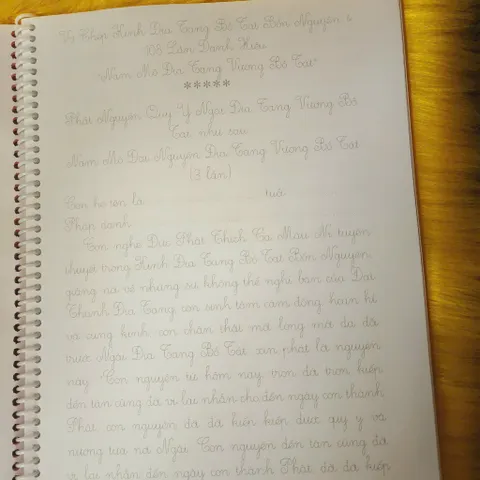 Vở Chép Kinh Địa Tạng Bồ Tát Bổn Nguyện &
108 Lần Danh Hiệu
"Nam Mô Địa Tạng Vương Bồ Tát"
*****
Phát Nguyện Quy Y Ngài Địa Tạng Vương Bồ
Tát như sau:
Nam Mô Đại Nguyện Địa Tạng Vương Bồ Tát
(3 lần)
Con họ tên là tuổi
Pháp danh
Con nghe Đức Phật Thích Ca Mâu Ni tuyên
thuyết trong Kinh Địa Tạng Bồ Tát Bổn Nguyện
giảng nói về những sự không thể nghĩ bàn của Đại
Thánh Địa Tạng, con sinh tâm cảm động, hoan hỉ
và cung kính, con chân thật mở lòng mở dạ đối
trước Ngài Địa Tạng Bồ Tát xin phát lời nguyện
này: Con nguyện từ hôm nay, trọn đời trọn kiếp
đến tận cùng đời vị lai nhẫn cho đến ngày con thành
Phật con nguyện đời đời kiếp kiếp được quy y và
nương tựa nơi Ngài. Con nguyện đến tận cùng đời
vị lai nhẫn đến ngày con thành Phật, đời đời kiếp